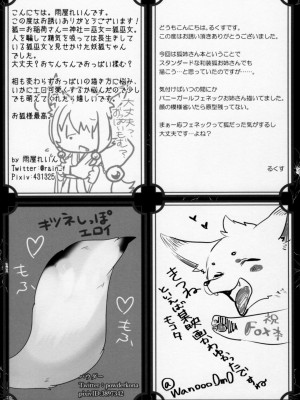 こんにちは、雨屋れいんです。
この度はお誘いありがとうございます!
狐=お稲荷さん=神社=巫女=狐巫女。
人を騙して精気を吸っては長生きして
いる狐巫女と見せかけた妖狐ちゃん
でした。
大丈夫?おちんちんでおっぱい揉む?
お狐様最高。
by 雨屋れいん
Twitter @rain_r
Pixiv 431325
どうもこんにちは、るくすです。
この度はお誘い頂きありがとうございました。
今回は狐娘さん本ということで
スタンダードな和装狐お姉さんでも
描こう…と思っていたのですが、
気付けばいつの間にか
バニーガールフェネックお姉さん描いてました。
顔の模様省いたら原型残ってない。
まぁ一応フェネックって狐だった気がするし
大丈夫です…よね?
るくす
キツネしっぽ
エロイ
もふ
もふ
パウダー
Twitter @powderkona
pixivID:3897342
きつね
といえば某映画
かわゆかったですね
モコタ
祝
Fox本
@wanooo0m0